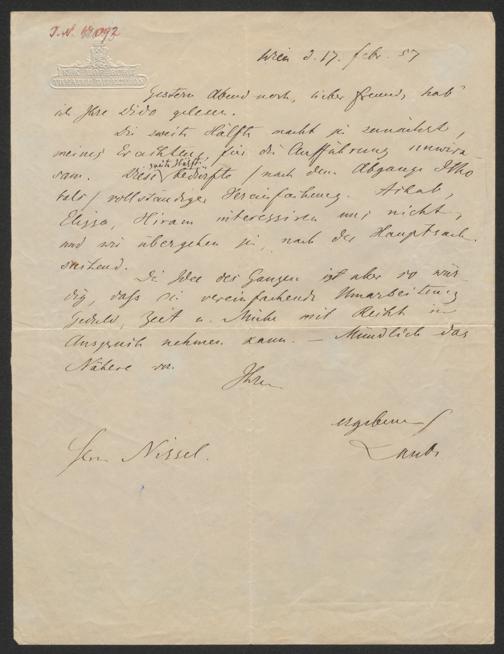 J.N. 
K.K. HOFBURG-
THEATER DIRECTION
Wien d. 17. febr. 57
Gestern Abend noch, lieber Freund, hab'
ich Ihre Dido gelesen.
Die zweite Hälfte macht sie zunächst,
meines Erachtens für die Aufführung unwirk
sam. Diese zweite Hälfte bedürfte (nach dem Abgange Itho
bals) vollständiger Vereinfachung. Achab,
Elissa, Hiram interessiren uns nicht,
und wir übergehen sie, nach der Hauptsache
suchend.
Die Idee des Ganzen ist aber so wür
dig, daß sie vereinfachende Umarbeitung
Geduld, Zeit u. Mühe mit Recht in
Anspruch nehmen kann. — Mündlich das
Nähere von
Ihrem
ergebenen
Laube
Herrn Nissel.